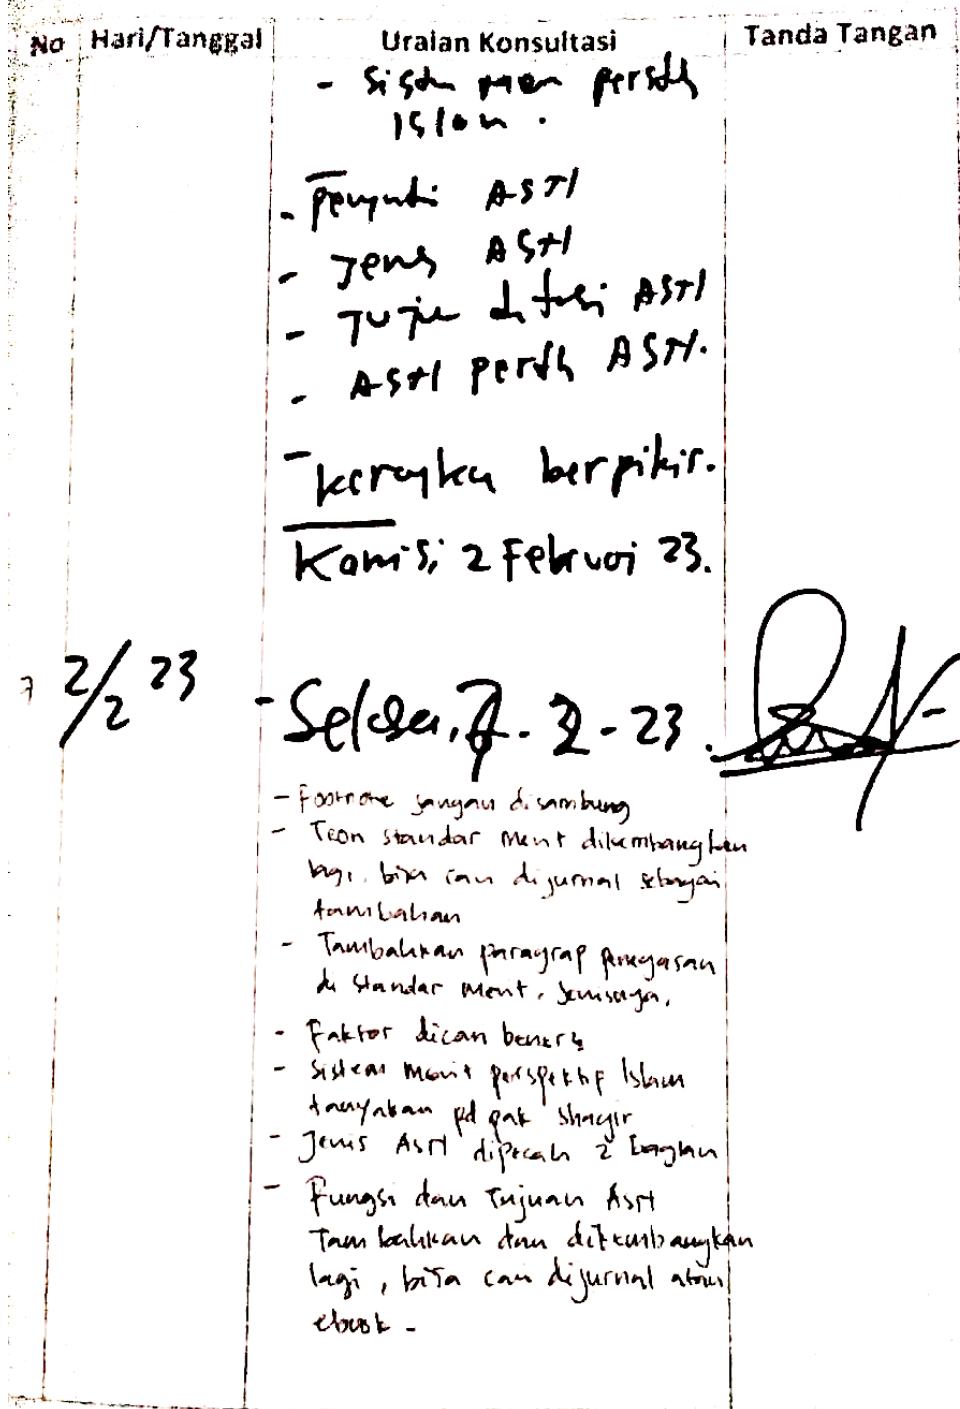 No Hari/Tanggal Uraian Konsultasi Tanda Tangan
- Sistem persth
Islam.
- ASN
- Jenis ASN
- Tujuan ASN
- ASN persth ASN.
- kerangka berpikir.
Kamis, 2 Februari 23.
7 2/2 23
- Selasa, 7.2-23.
- Footnote jangan disambung
- Teori standar merit dikembangkan
lagi. bisa cari dijurnal sebagai
tambahan
- Tambahkan paragrap penegasan
di standar merit,
- Faktor dicari
- Sistem merit perspektif Islam
tanyakan pd pak
- Jenis ASN dipecah 2 bagian
- Fungsi dan Tujuan ASN
Tambahkan dan dikembangkan
lagi, bisa cari dijurnal atau
ebook -